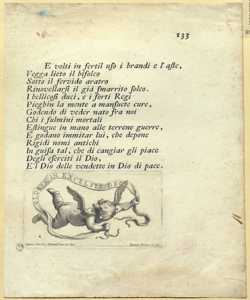 133
E volti in fertil uso i brandi e l'aste,
Vegga lieto il bifolco
Sotto il fervido aratro
Rinovellarsi il già smarrito solco.
I bellicosi duci, e i forti Regi
Pieghin la mente a mansuete cure,
Godendo di veder nato fra noi
Chi i fulmini mortali
Estingue in mano alle terrene guerre,
E godano immitar lui, che depone
Rigidi nomi antichi
In guisa tal, che di cangiar gli piace
Degli eserciti il Dio,
E'l Dio delle vendette in Dio di pace.
GLORIA IN EXCELSIS DEO